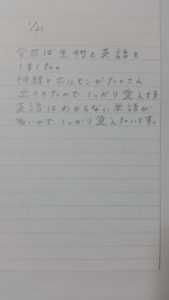 1/21
今日は生物と英語を
しました。
神経とホルモンがたくさん
出てきたので、しっかり覚えます
英語はわからない単語が
多いので、しっかり覚えたいです。